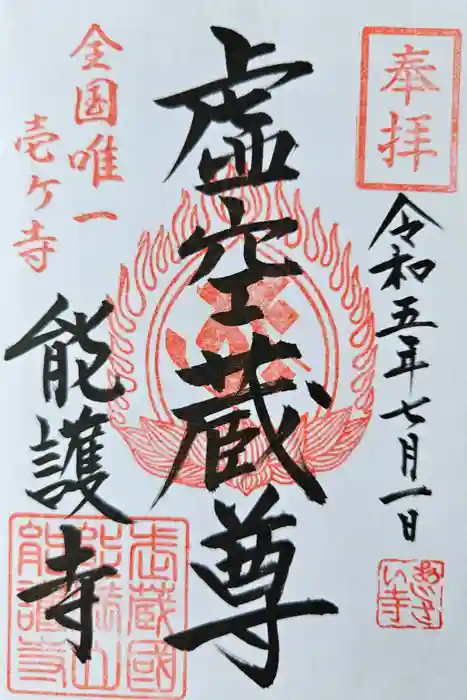 奉拝
令和五年七月一日
あじさい寺
虚空蔵尊
全国唯一
壱ケ寺
能護寺
武蔵國
能護寺